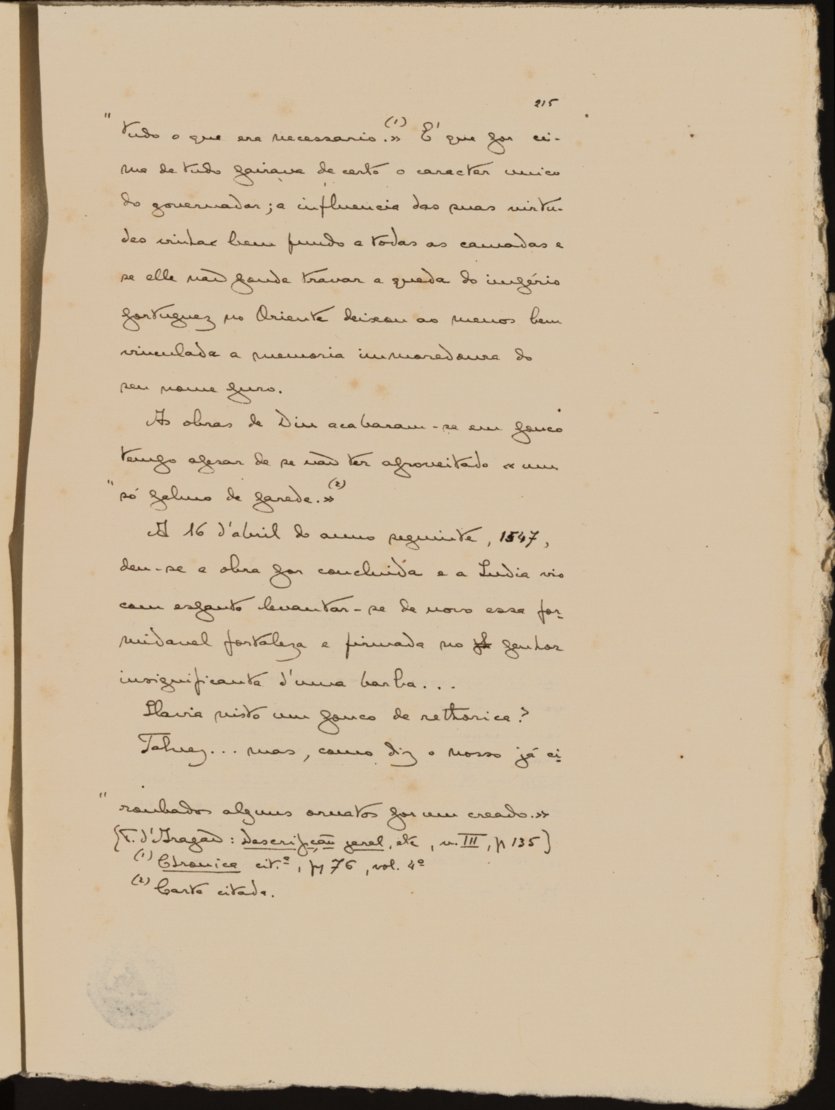 215
"tudo o que era necessario.(1)» E' que por ci-
ma de tudo pairava de certo o caracter unico
do governador; a influencia das suas virtu-
des vinha bem fundo a todas as camadas e
se elle não poude travar a queda do império
portuguez no Oriente deixou ao menos bem
vinculada a memoria immoredoura do
seu nome puro.
As obras de Diu acabaram-se em pouco
tempo apesar de se não ter aproveitado «um
"só palmo de parede.»(2)
A 16 d'abril do anno seguinte, 1547,
deu-se a obra por concluida e a India vio
com espanto levantar-se de novo essa for-
midavel fortaleza e firmada no penhor
insignificante d'uma barba...
Havia nisto um pouco de rethorica?
Talvez... mas, como diz o nosso já ci-
"roubados alguns ornatos por um creado.»
(T. d'Aragão: Descripção geral, etc, v. III, p 135)
(1) Chronica cit.º, pg 76, vol. 4º
(2) Carta citada.